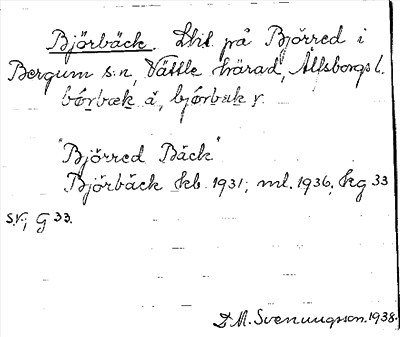 Björbäck. Lht på Björred i
Bergum s:n, Vättle härad, Älfsborgs l.
bǿrbæk ä, bjǿrbak y.
"Björred Bäck"
Björbäck kb. 1931; ml. 1936, kg 33
s.v.; G 33.
D. M. Svenungsson. 1938.